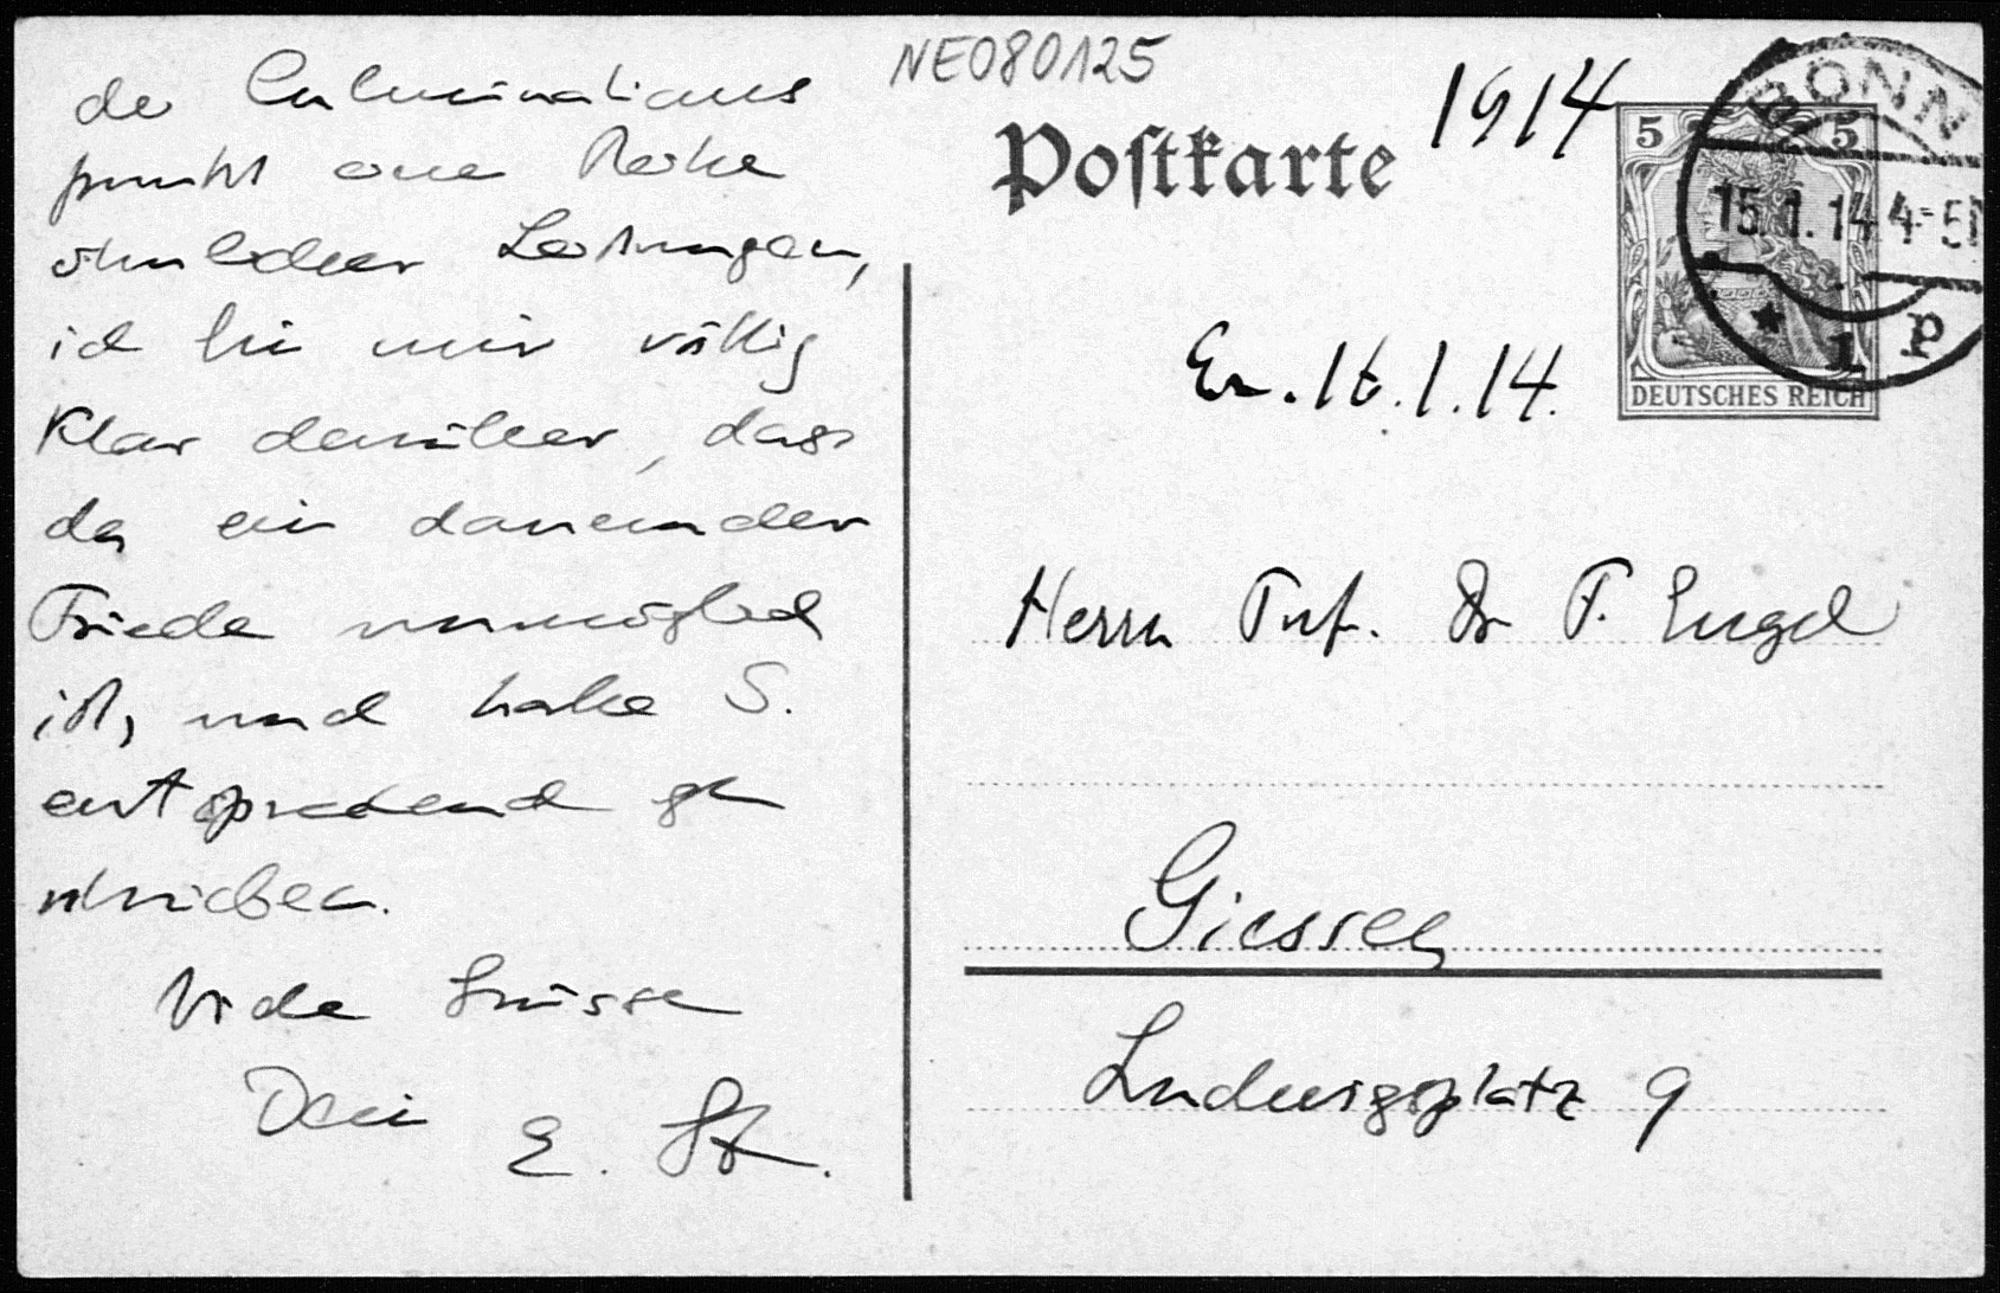 NE080125
1914
Postkarte
5 5
DEUTSCHES REICH
BONN
15.1.14 4-5N
* 1 p
Er. 16.1.14.
der Culminations
punkt einer Reihe
ähnlicher Leistungen,
ich bin mir völlig
klar darüber, dass
da ein dauernder
Friede unmöglich
ist, und habe S.
entsprechend ge
schrieben.
Viele Grüsse
Dein E. St.
Herrn Prof. Dr F. Engel
Giessen
Ludwigsplatz 9